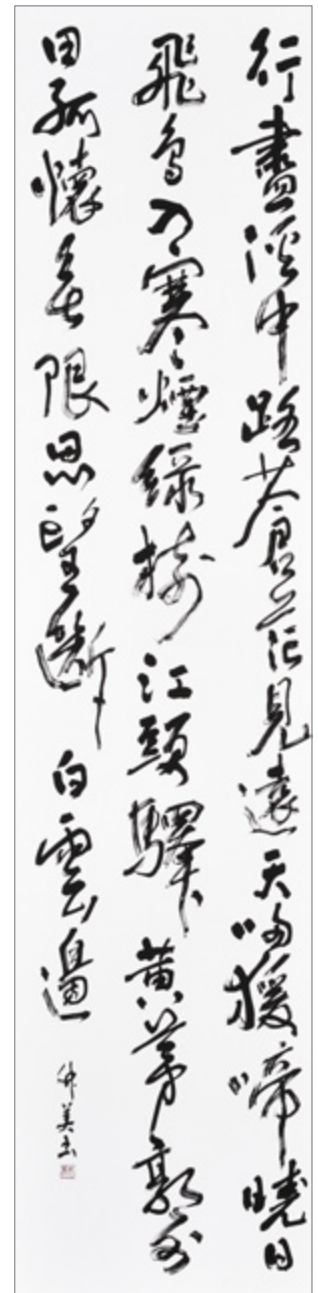 行盡中路蒼茫見遠天猨啼曉日
飛鳥入寒煙綠樹江頭驛黃茅郭外
田孤懷無限思望斷白雲邊
美书